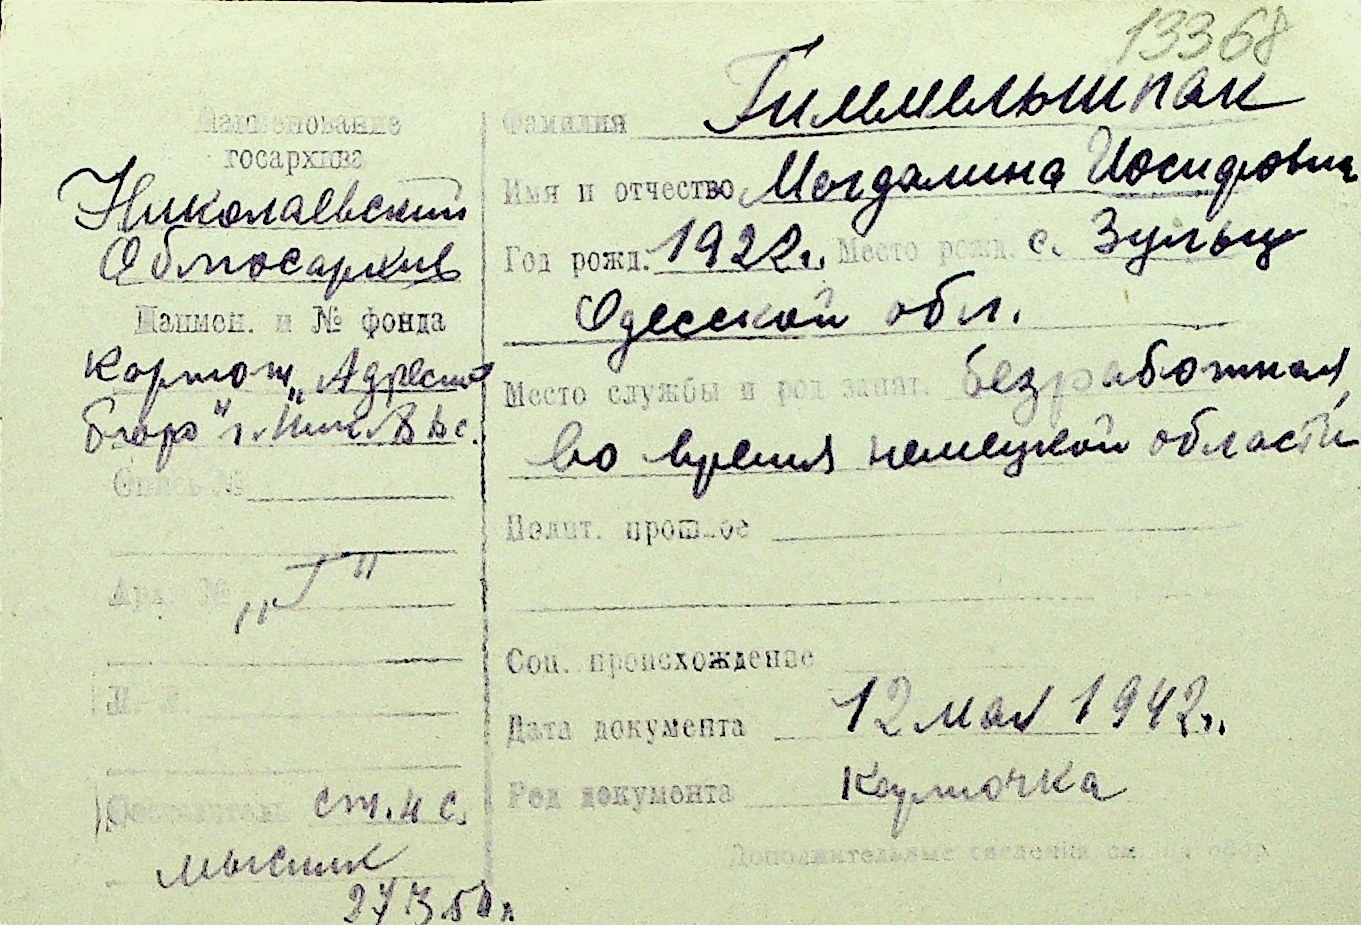 13368
Наименование
госархива
Николаевский
Облгосархив
Наимен. и № фонда
Картот. „Адресное
бюро" г.
Опись №
Арх. №
„Г"
Л. Л.
Составитель ст. н. с.
27/3.50 г.
Фамилия Гиммельшпак
Имя и отчество Магдалина Иосифовна
Год рожд. 1922 г. Место рожд. с. Зульц
Одесской обл.
Место службы и род занят. безработная,
во время немецкой области
Полит. прошлое
Соц. происхождение
Дата документа 12 мая 1942 г.
Род документа Карточка
Дополнительные сведения см. на обор.